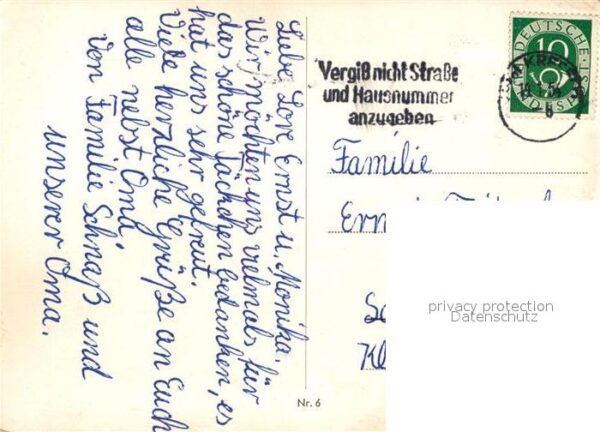 Liebe Lore Ernst u. Monika.
Wir möchten uns vielmals für
das schöne Päckchen bedanken, es
hat uns sehr gefreut.
Viele herzliche Grüße an Euch
alle nebst Omi
von Familie Schnaß und
unserer Oma.
Vergiß nicht Straße
und Hausnummer
anzugeben
DEUTSCHE
10
Familie
privacy protection
Datenschutz
Nr. 6